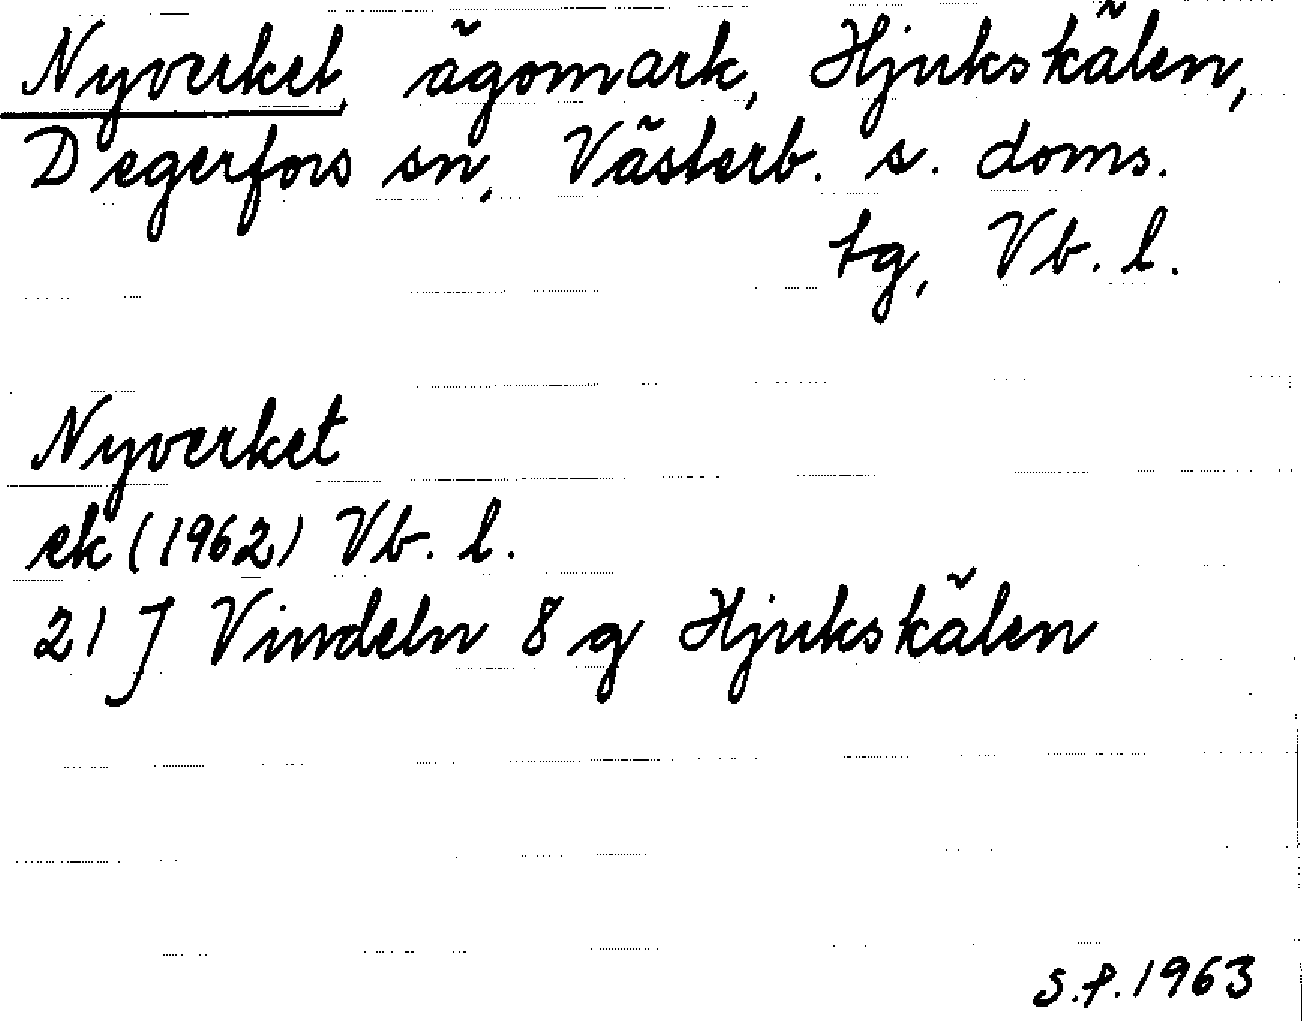 Nyverket, ägomark, Hjukskälen,
Degerfors sn, Västerb. s. doms.
tg, Vb. l.
Nyverket
ek (1962) Vb. l.
21 J Vindeln 8 g Hjukskälen
S.P. 1963